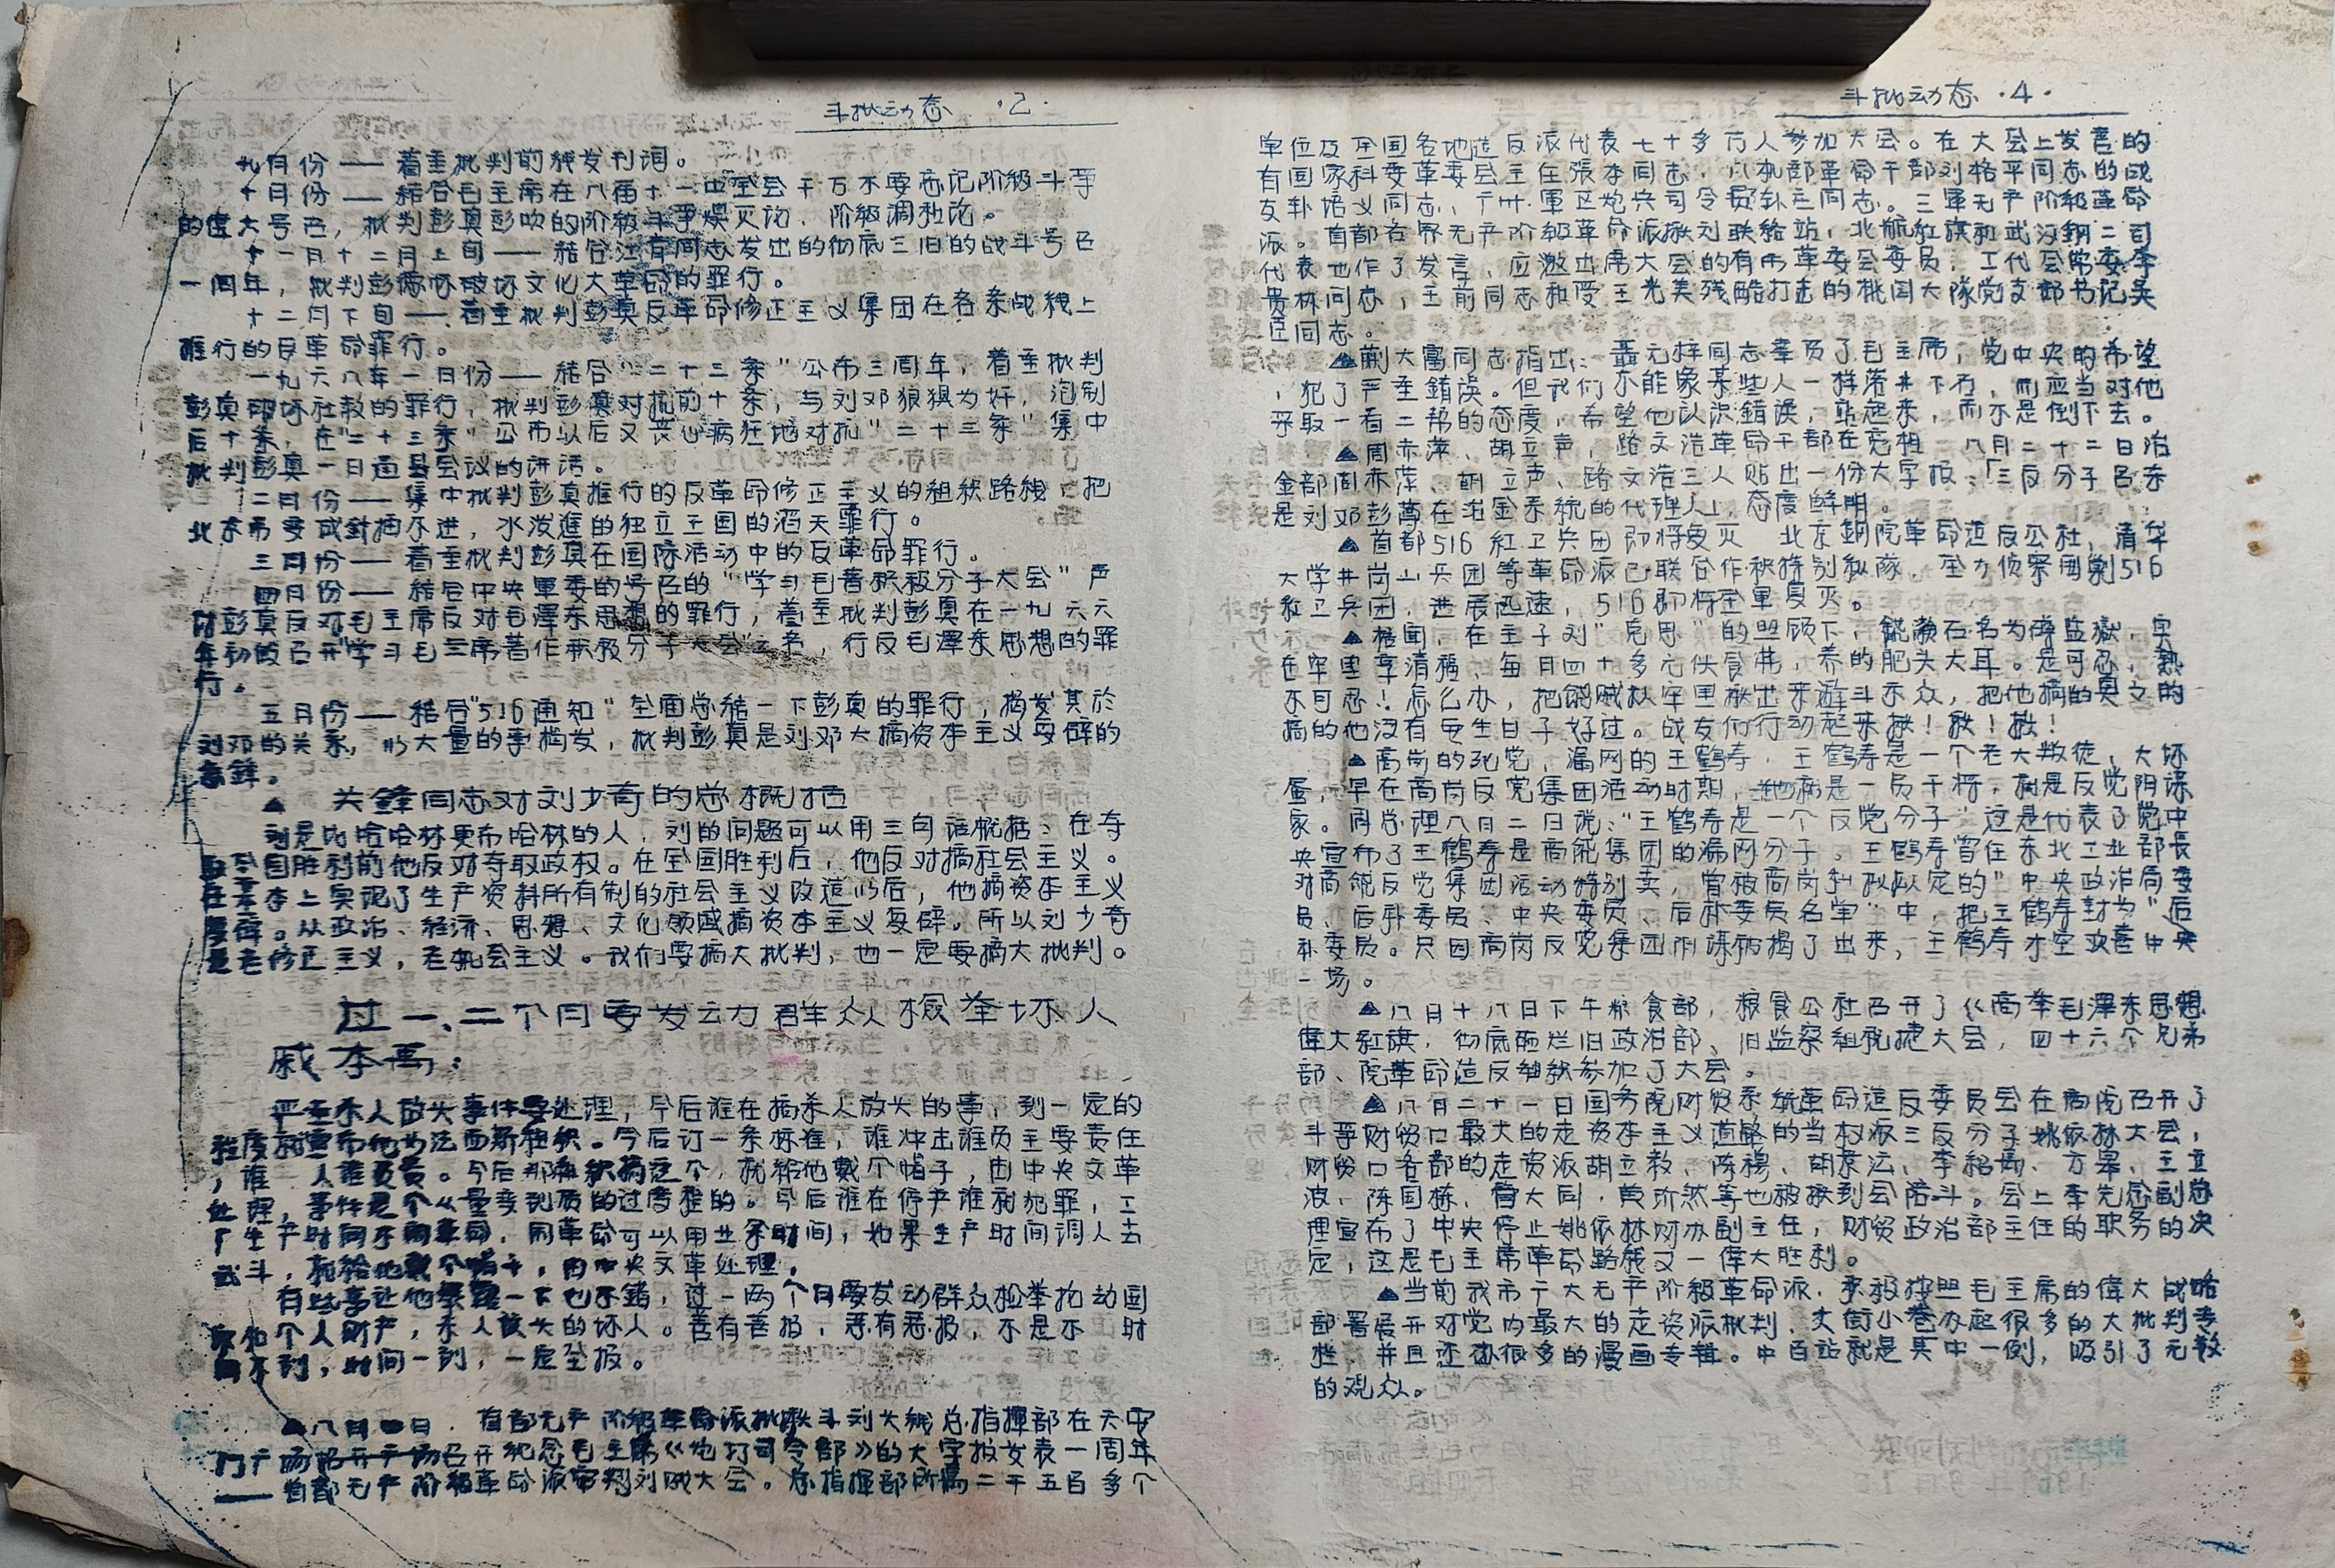 斗批动态 ·2·
九月份——着重批判前线发刊词。
十月份——结合毛主席在八届十一中全会千万不要忘记阶级斗争
的偉大号召，批判彭真彭吹的阶级斗爭熄灭论、阶级調和论。
十一月十二月上旬——結合江青同志发出的彻底三旧的战斗号召
一周年，批判彭破坏文化大革命的罪行。
十二月下旬——着重批判彭真反革命修正主义集团在各条战线上
推行的反革命罪行。
一九六八年一月份——結合“二十三条”公布三周年，着重批判
彭真破坏社教的罪行，批判彭真对抗前十条，与刘邓狼狽为奸，泡制
后十条，在“二十三条”公布以后又丧心病狂地对抗“二十三条”集中
批判彭真一日通县会议的讲话。
二月份——集中批判彭真推行的反革命修正主义的组织路线，把
北京市变成針插不进，水泼進的独立王国的滔天罪行。
三月份——着重批判彭真在国际活动中的反革命罪行。
四月份——結合中央軍委的号召的“学习毛著积极分子大会”声
討彭真反对毛主席反对毛澤东思想的罪行，着重批判彭真在一九六六
年初的召开“学习毛主席著作积极分子大会”之名，行反毛澤东思想的罪
行。
五月份——結合“516通知”全面总結一下彭真的罪行，揭发其於
刘邓的关系，以大量的事揭发，批判彭真是刘邓大搞资本主义复辟的
急鋒。
▲ 关鋒同志对刘少奇的总概括
刘是比哈哈林更布哈林的人，刘的问题可以用三句话概括：在夺
取全国胜利前他反对夺取政权。在全国胜利后，他反对搞社会主义。
在基本上实现了生产资料所有制的社会主义改造以后，他搞资本主义
复辟。从政治、経济、思想、文化领域搞资本主义复辟。所以刘少奇
是老修正主义，老机会主义。我们要搞大批判，也一定要搞大批判。
过一、二个月要发动群众検举坏人
戚本禹：
严重杀人放火事件要处理，今后谁在搞杀人放火的事，到一定的
程度就宣布他为法西斯組织。今后订一条标准，谁冲击谁员主要责任
，谁 人谁负责。今后那組织搞这个，就給他戴个帽子，由中央文革
处理，事件是个从量变到质的过度程的。今后谁在停产谁就犯罪，工
厂生产时间不闹革命，闹革命可以用业余时间，如果生产时间调人去
武斗，就給他戴个帽子，由中央文革处理。
有些事让他暴露一下也不錯，过一两个月要发动群众检举抢劫国
家和个人财产，杀人放火的坏人。善有善报，恶有恶报，不是不 时
间不到，时间一到，一定全报。
▲八月 日，首都无产阶级革命派批揪斗刘火线总指揮部在天安
门广场召开召开紀念毛主席《炮打司令部》的大字报发表一周年
——首都无产阶级革命派审判刘贼大会。总指揮部所属二千五百多个
斗批动态 ·4·
单位及全国各地造反派代表七十多万人参加大会。在大会上发言的
有国家科委革委会主任張本同志，八机部革命干部刘格平同志的战
友卦培义同志、广卅軍区炮兵司令员卦主同志。三軍无产阶級革命
派。首都各界无产阶级革命派揪刘联絡站，北航紅旗和武汉鋼二司
代表也作了发言、应邀出席大会的有市革委会委员、工代会常委李
貴林同志，王前同志和受王光美残酷打击的桃园大隊党支部书记吴
臣同志。
▲蒯大富同志指出：聂元梓同志辜负了毛主席，党中央的希望
，犯了严重錯误。但我们不能象某些人一样落井下石，而应当对他
采取一看二帮的态度，希望他认识錯误，站起来，而不是倒下去。
▲周赤萍、胡立声，路文浩革命干部在亮相 八月二十二日冶
金部周赤萍、胡立声、路文浩三人贴出一份大字报：「三反分子吕东
是刘邓彭薄在冶金系統的代理人」，态度鲜明。
▲首都516紅卫兵团即将复灭 北京鋼院革命造反公社，清华
大学井岗山兵团等革命派已联合作秧特别纵隊，全力侦察围剿516
紅卫兵团，进展迅速，516即将全軍复灭。
▲據闻，在主子刘“鬼思”的照顾下，饒漱石名为蹲监獄，实
在牢里享清福，每月四十多元伙食費，养的肥头大耳。是可忍，熟
不可忍！怎么办，把饒贼从牢里揪出来遊斗示众，把他搞的臭之的
搞的他没有每生日子好过。战友们行动起来揪！揪！揪！
▲高岗的死党，漏网的王鹤寿，王鹤寿是一个老大叛徒，大坏
蛋，早在高岗反党集团活动时期，他就是一员干将，就是反党阴谋
家。周总理八日二日说：“王鹤寿是一个反党分子”这是代表了党中
央宣布了王鹤寿是高饒集团的漏网分子。王鹤寿曾任东北工业部長
对高饒反党集团活动特别卖，曾被高岗私拟从定的“中央政治局委
员、后补委员、中央委员、后补委员名单”中，把王鹤寿封为“后
补委员。只因高岗反党集团阴谋被揭了出来，王鹤寿才空欢喜中央
一场。
▲八月十八日下午粮食部，粮食公社召开了《高举毛澤东思想
偉大紅旗，彻底砸烂旧政治部、旧监察組祝捷大会，四十六个兄弟
部、院革命造反組织参加了大会。
▲八月二十一日国务院财贸系統革命造反委员会在商院召开了
斗爭财贸口最大的走资本主义道路的当权派三反分子姚依林大会，
财贸口各部的走资派胡立教、陈穆、胡景沄、李紹禹、方皋、王立
波、陈国栋、曾大同、黄所然等也被揪到会陪斗。会上李先念副总
理宣布了中央停止姚依林财办副主任，财贸政治部主任的职务的决
定，这是毛主席革命路线又一偉大胜利。
▲当前我市广大无产阶级革命派，积极按照毛主席的偉大战略
部署展开对党内最大的走资派批判，大街小巷办起很多的大批判专
栏，并且还办很多的漫画专輯。中百站就是其中一例，吸引了无数
的观众。